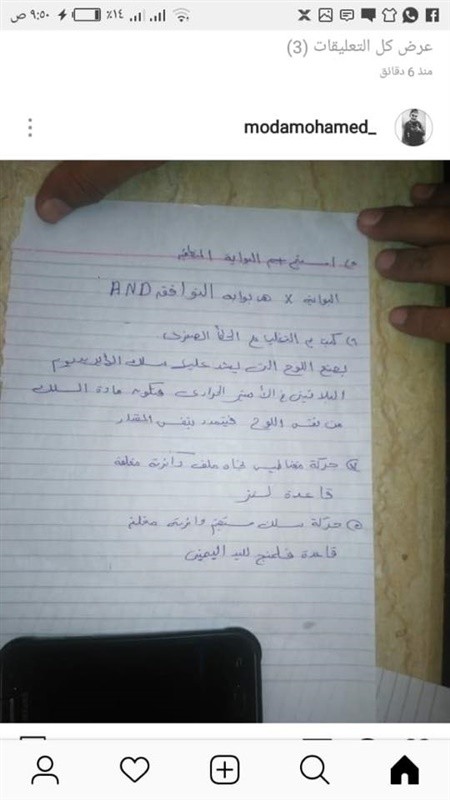 ٩:٥٠ ص
١٤٪
عرض كل التعليقات (3)
منذ 6 دقائق
modamohamed_
استنتج اسم البوابة المنطقية
البوابة X هى بوابة التوافق AND
كيف يتم التغلب على الخطأ الصفرى
يصنع اللوح التى يشد عليها سلك الايريديوم
البلاتينى فى الأميتر الحرارى فتكون مادة السلك
من نفس اللوح فيتمدد بنفس المقدار
حركة مغناطيس تجاه ملف دائرته مغلقة
قاعدة لنز
حركة سلك مستقيم دائرته مغلقة
قاعدة فلمنج لليد اليمنى